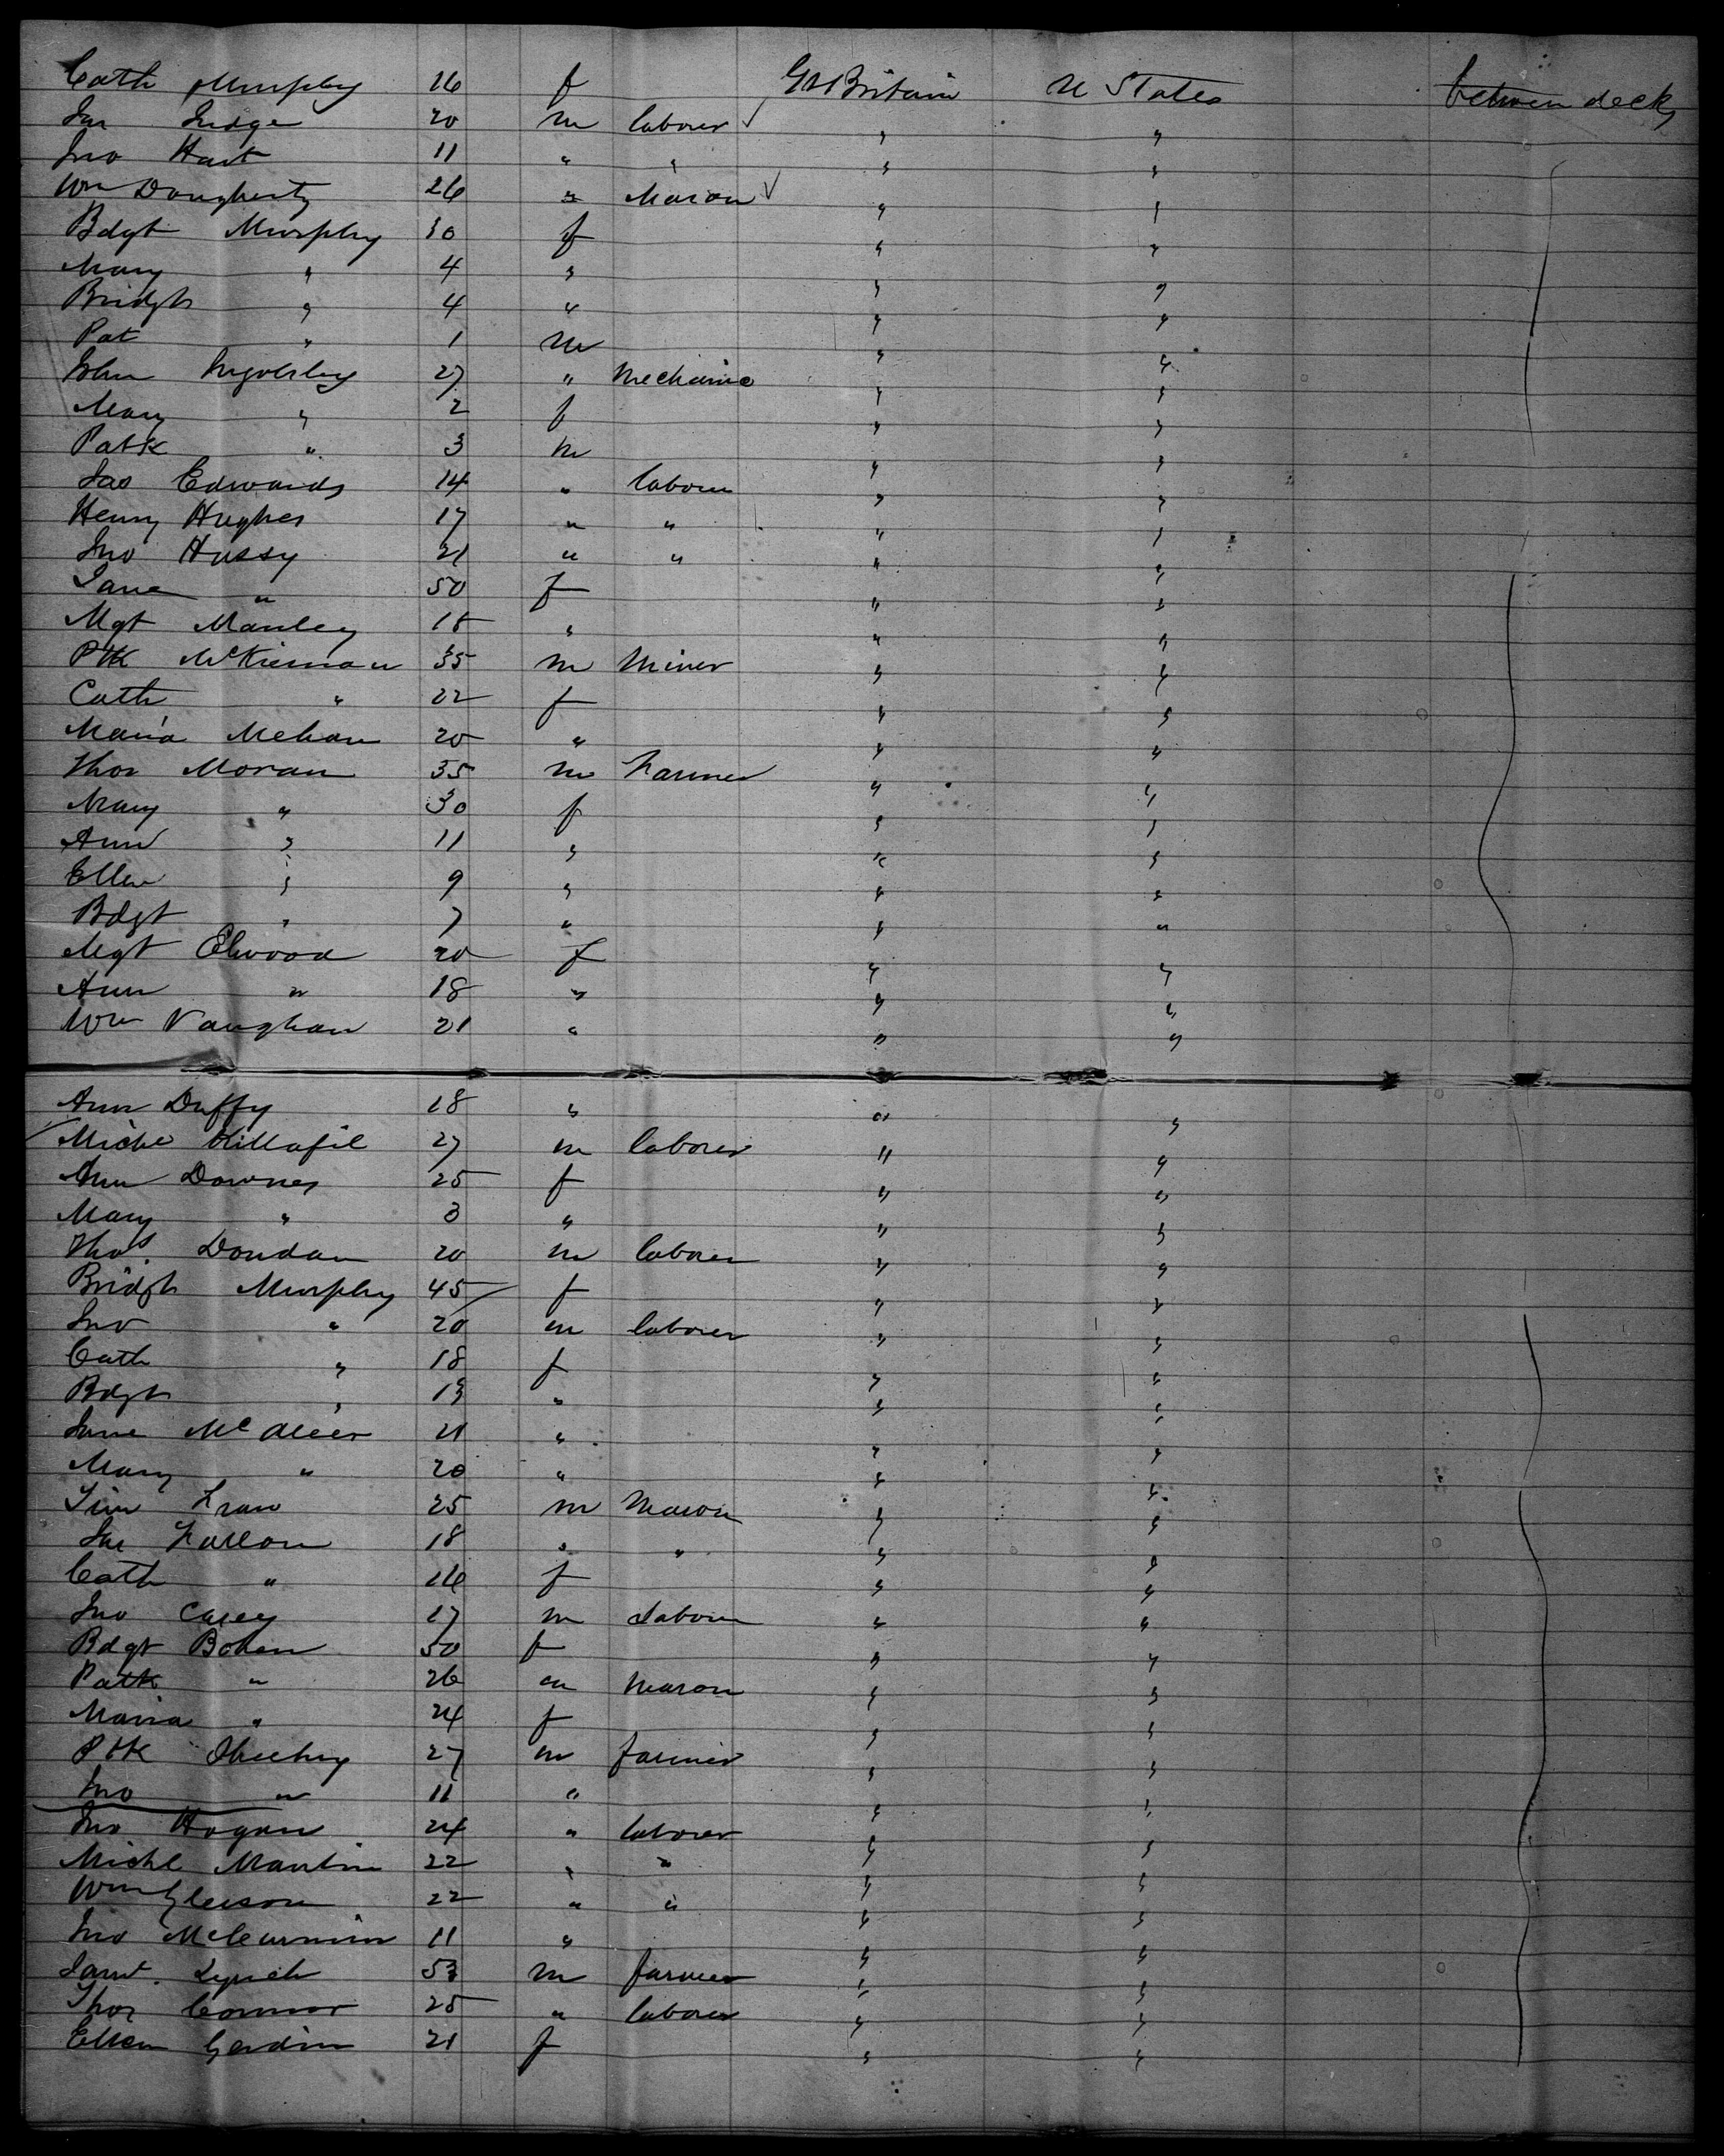 Cath Murphy 16 f Gt Britain U States between decks
Jas Judge 20 m laborer ✓ " "
Jno Hart 11 " " " "
Wm Dougherty 26 " Mason ✓ " "
Bdgt Murphy 30 f " "
Mary " 4 " " "
Bridgt " 4 " " "
Pat " 1 m " "
John Ingolsby 27 " Mechanic " "
Mary " 2 f " "
Patk " 3 m " "
Jas Edwards 14 " laborer " "
Henry Hughes 17 " " " "
Jno Hussy 21 " " " "
Jane " 50 f " "
Mgt Manley 18 " " "
Ptk McKiernan 35 m Miner " "
Cath " 22 f " "
Maria Mehan 20 " " "
Thos Moran 35 m Farmer " "
Mary " 30 f " "
Ann " 11 " " "
Ellen " 9 " " "
Bdgt " 7 " " "
Mgt Elwood 20 f " "
Ann " 18 " " "
Wm Vaughan 21 " " "
Ann Duffy 18 " " "
Michl Killafil 27 m laborer " "
Ann Downes 25 f " "
Mary " 3 " " "
Thos. Dondan 20 m laborer " "
Bridgt Murphy 45 f " "
Jno " 20 m laborer " "
Cath " 18 f " "
Bdgt " 13 " " "
Jane McAleer 21 " " "
Mary " 20 " " "
Tim 25 m Mason " "
Jas Fallon 18 " " " "
Cath " 16 f " "
Jno Casey 17 m Laborer " "
Bdgt Bohen 50 f " "
Patk " 26 m Mason " "
Maria " 24 f " "
Ptk Sheehy 27 m farmer " "
Jno " 11 " " "
Jno Hogan 24 " laborer " "
Michl Martin 22 " " " "
Wm Gleeson 22 " " " "
Jno 11 " " "
Lynch 53 m farmer " "
Thos Connor 25 " laborer " "
Ellen 21 f " "